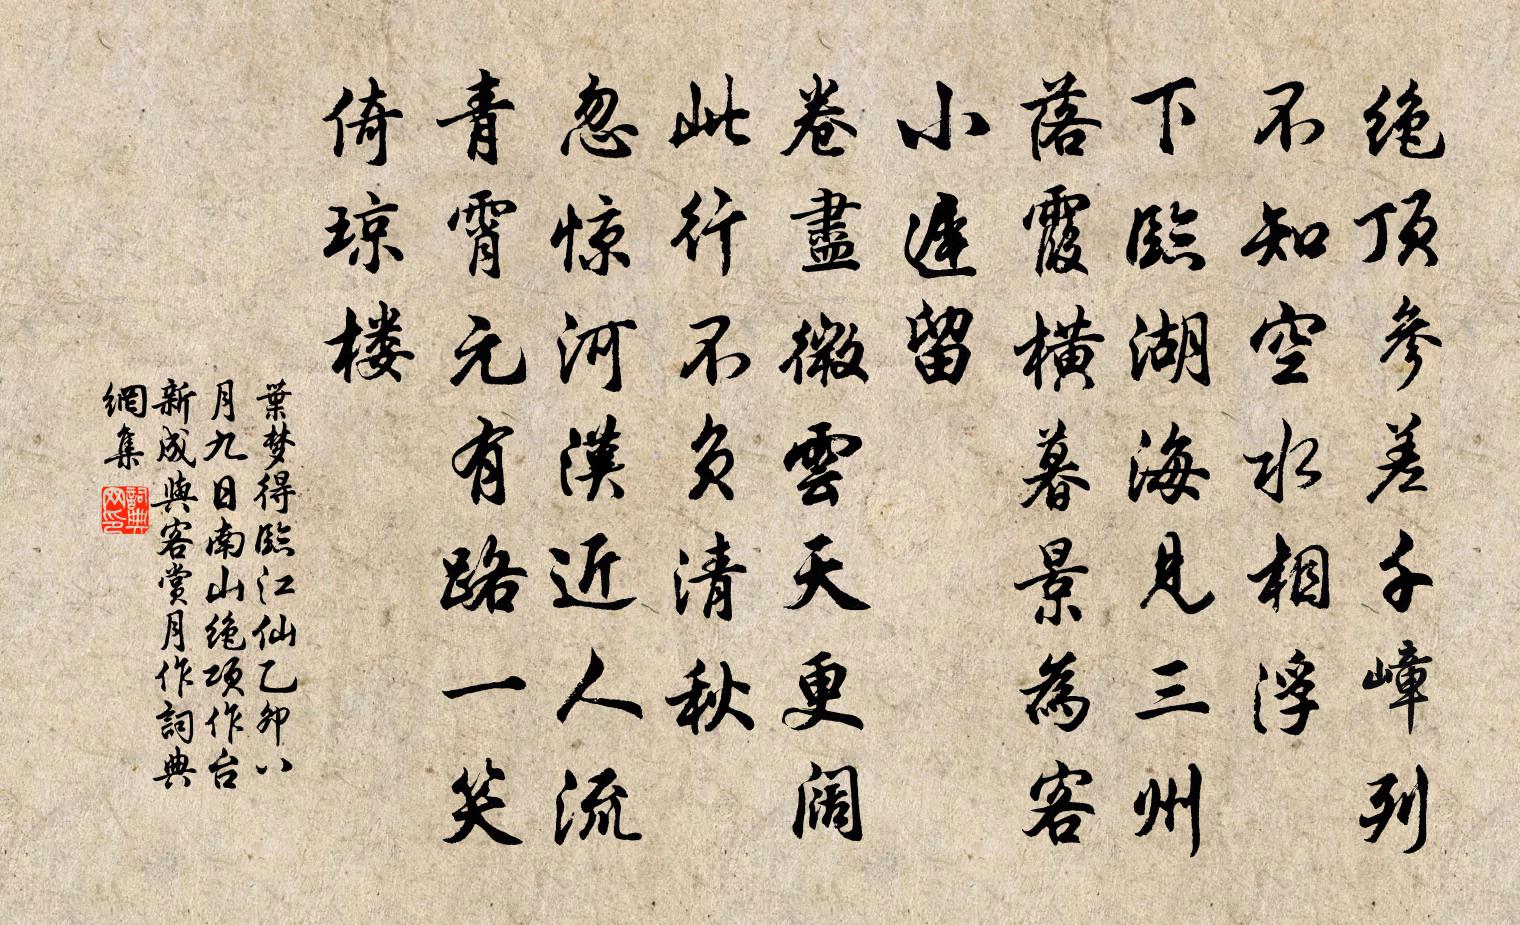 绝顶參差千嶂列
不知空水相浮
下臨湖海見三州
落霞橫暮景為客
小遲留
卷盡微雲天更阔
此行不负清秋
忽惊河漢近人流
青霄元有路一笑
倚琼楼
葉梦得臨江仙乙卯八
月九日南山绝项作台
新成與客赏月作詞典
網集
詞典网印